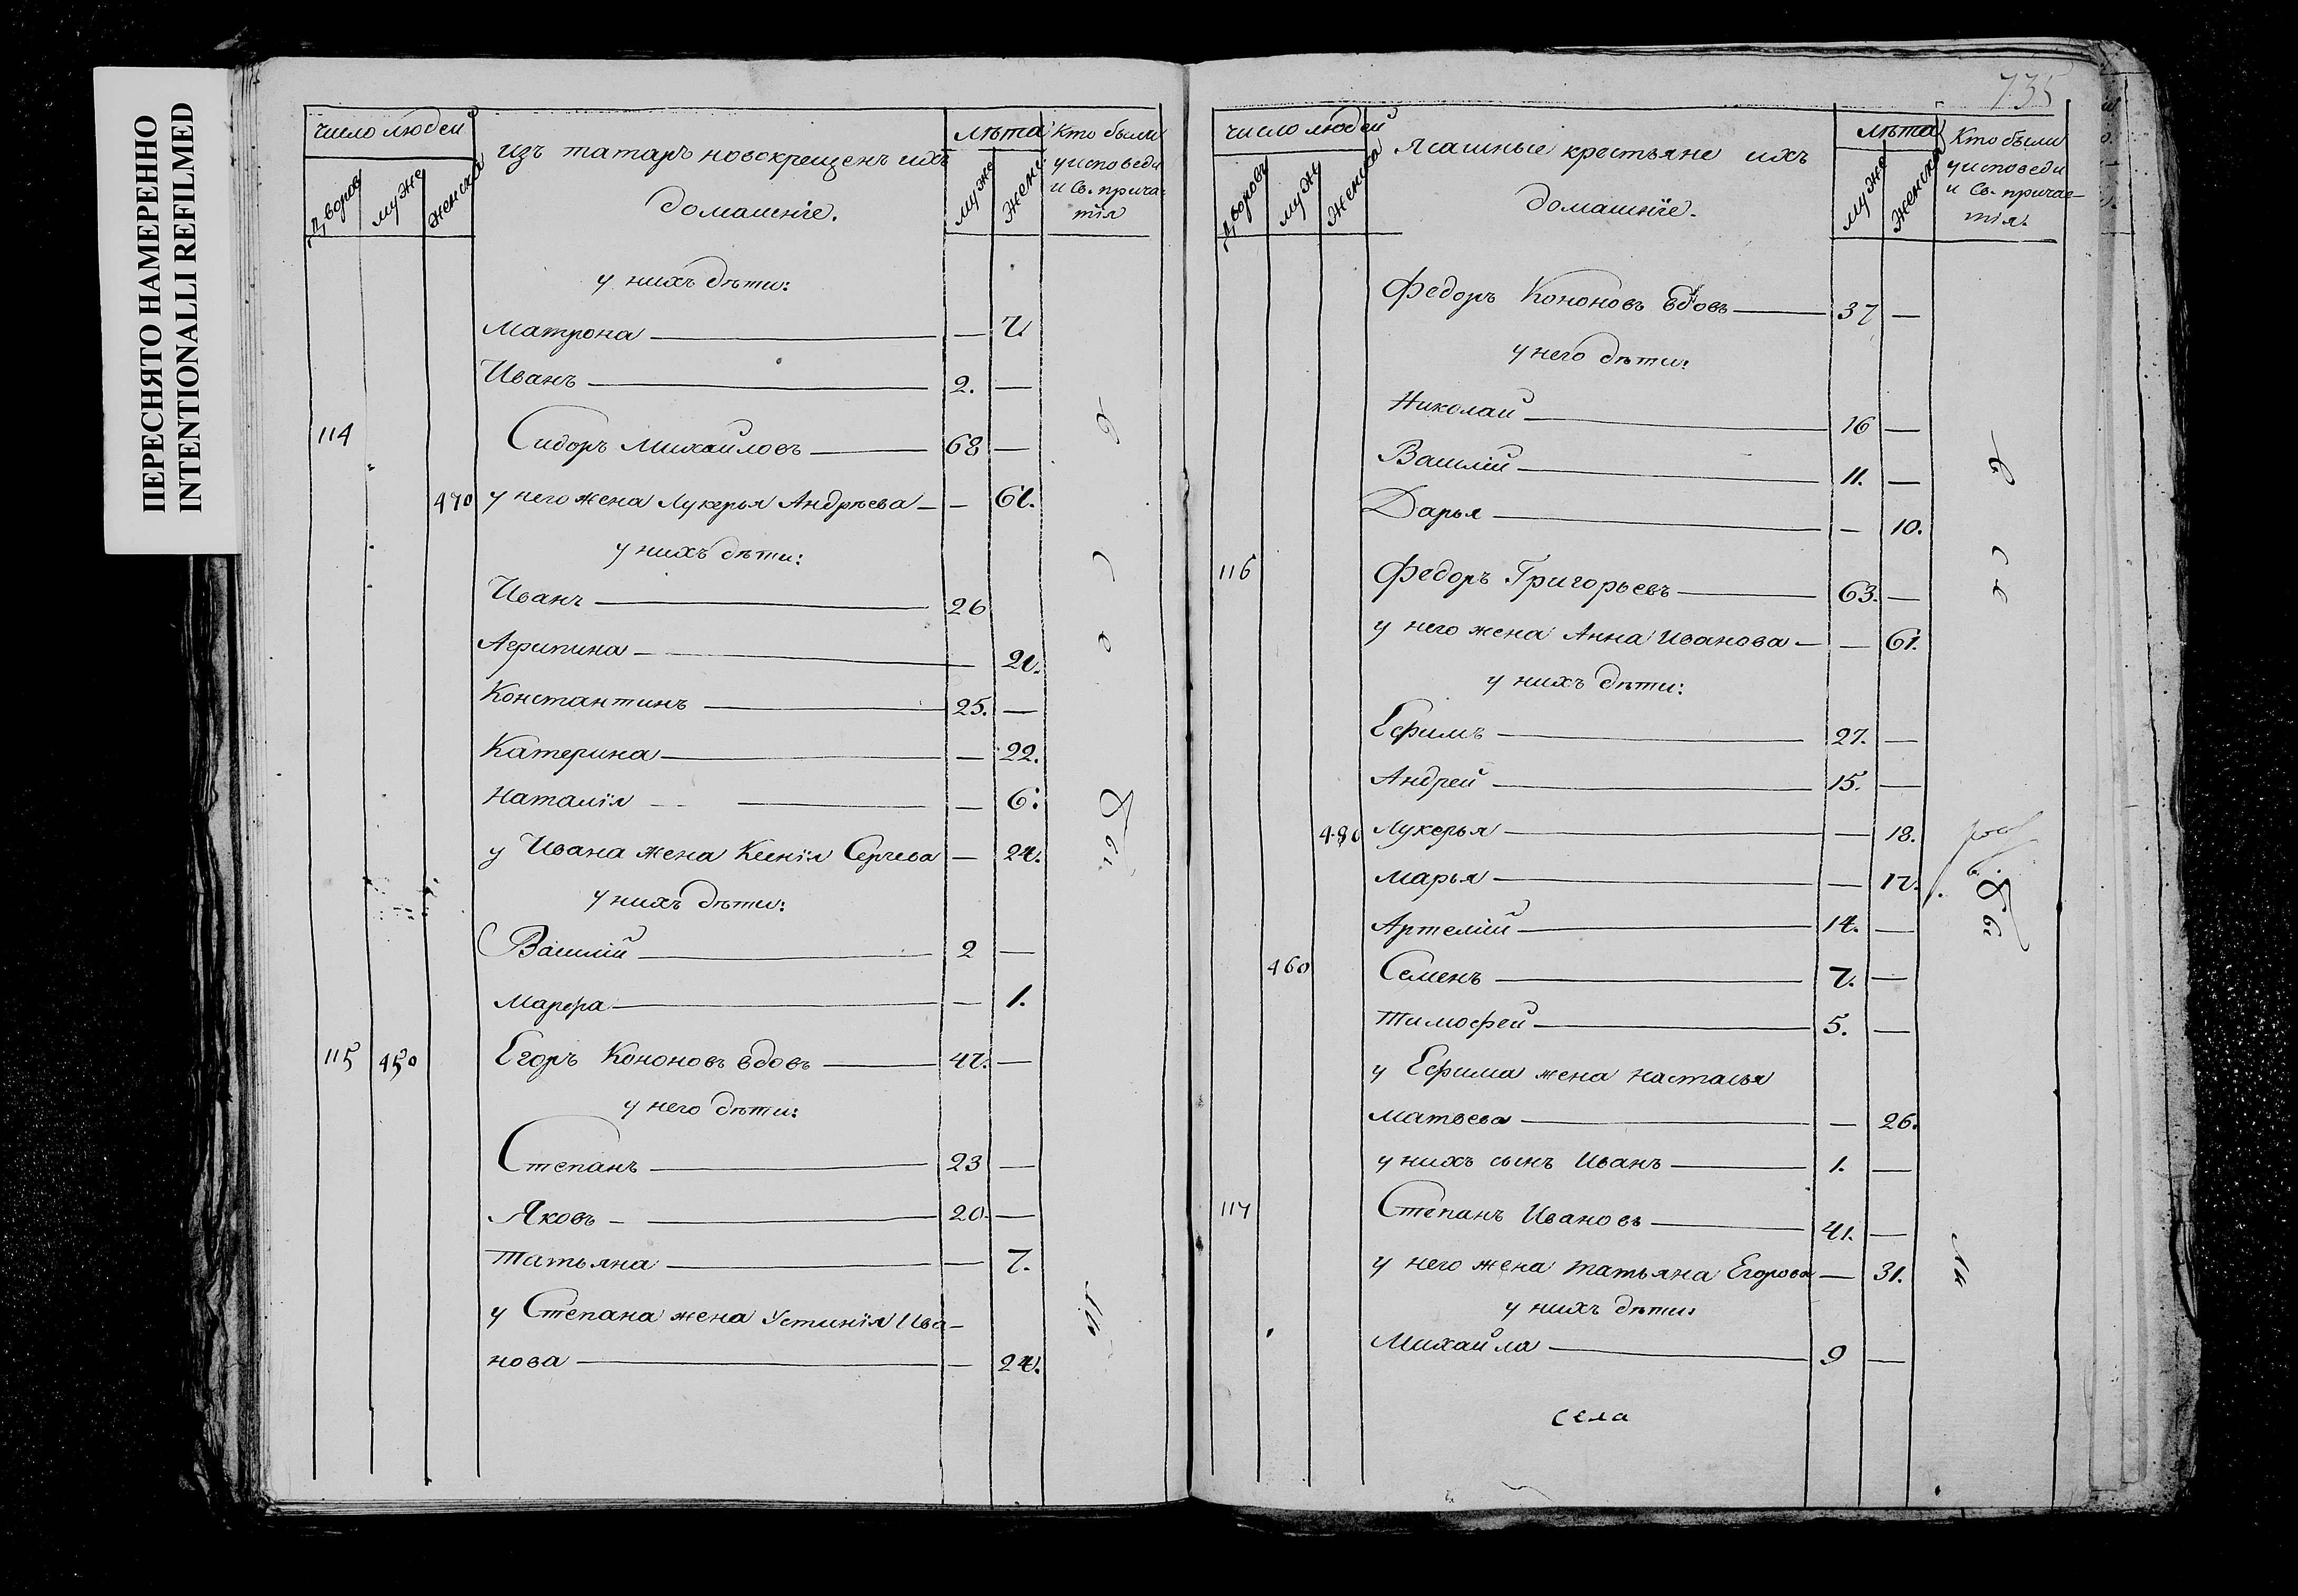 ПЕРЕСНЯТО НАМЕРЕННО
INTENTIONALLI REFILMED
число людей
дворов муже женска
изъ татаръ новокрещенъ ихъ
домашніе.
лѣта
муже женс
Кто были
у исповеди
и Св. прича-
тія
у нихъ дѣти:
Матрона — —
Иванъ — 2. —
114 Сидоръ Михайловъ — 68 —
470 у него жена Лукерья Андрѣева — — 61.
у нихъ дѣти:
Иванъ — 26
Агрипина — 21.
Константинъ — 25. —
Катерина — — 22.
Наталія — — 6:
у Ивана жена Ксенія Сергева — 24.
у нихъ дѣти:
Василій — 2 —
Марѳра — — 1.
115 450 Егоръ Кононовъ вдовъ — 47. —
у него дѣти:
Степанъ — 23 —
Яковъ — 20. —
Татьяна — — 7.
у Степана жена Устинія Ива-
нова — — 24.
735
число людей
дворовъ муж женска
Ясашные крестьяне ихъ
домашніе.
лѣта
муже женска
Кто были
у исповеди
и Св. причас-
тія.
Федоръ Кононовъ вдовъ — 37 —
у него дѣти:
Николай — 16 —
Василій — 11. —
Дарья — — 10.
116 Федоръ Григорьевъ — 63. —
у него жена Анна Иванова — — 61.
у нихъ дѣти:
Ефимъ — 27. —
Андрей — 15. —
480 Лукерья — — 18.
Марья — — 17.
Артемій — 14. —
460 Семенъ — 7. —
Тимофей — 5. —
у Ефима жена Настасья
Матвева — — 26.
у нихъ сынъ Иванъ — 1. —
117 Степанъ Ивановъ — 41. —
у него жена Татьяна Егорова — 31.
у нихъ дѣти:
Михайла — 9 —
села